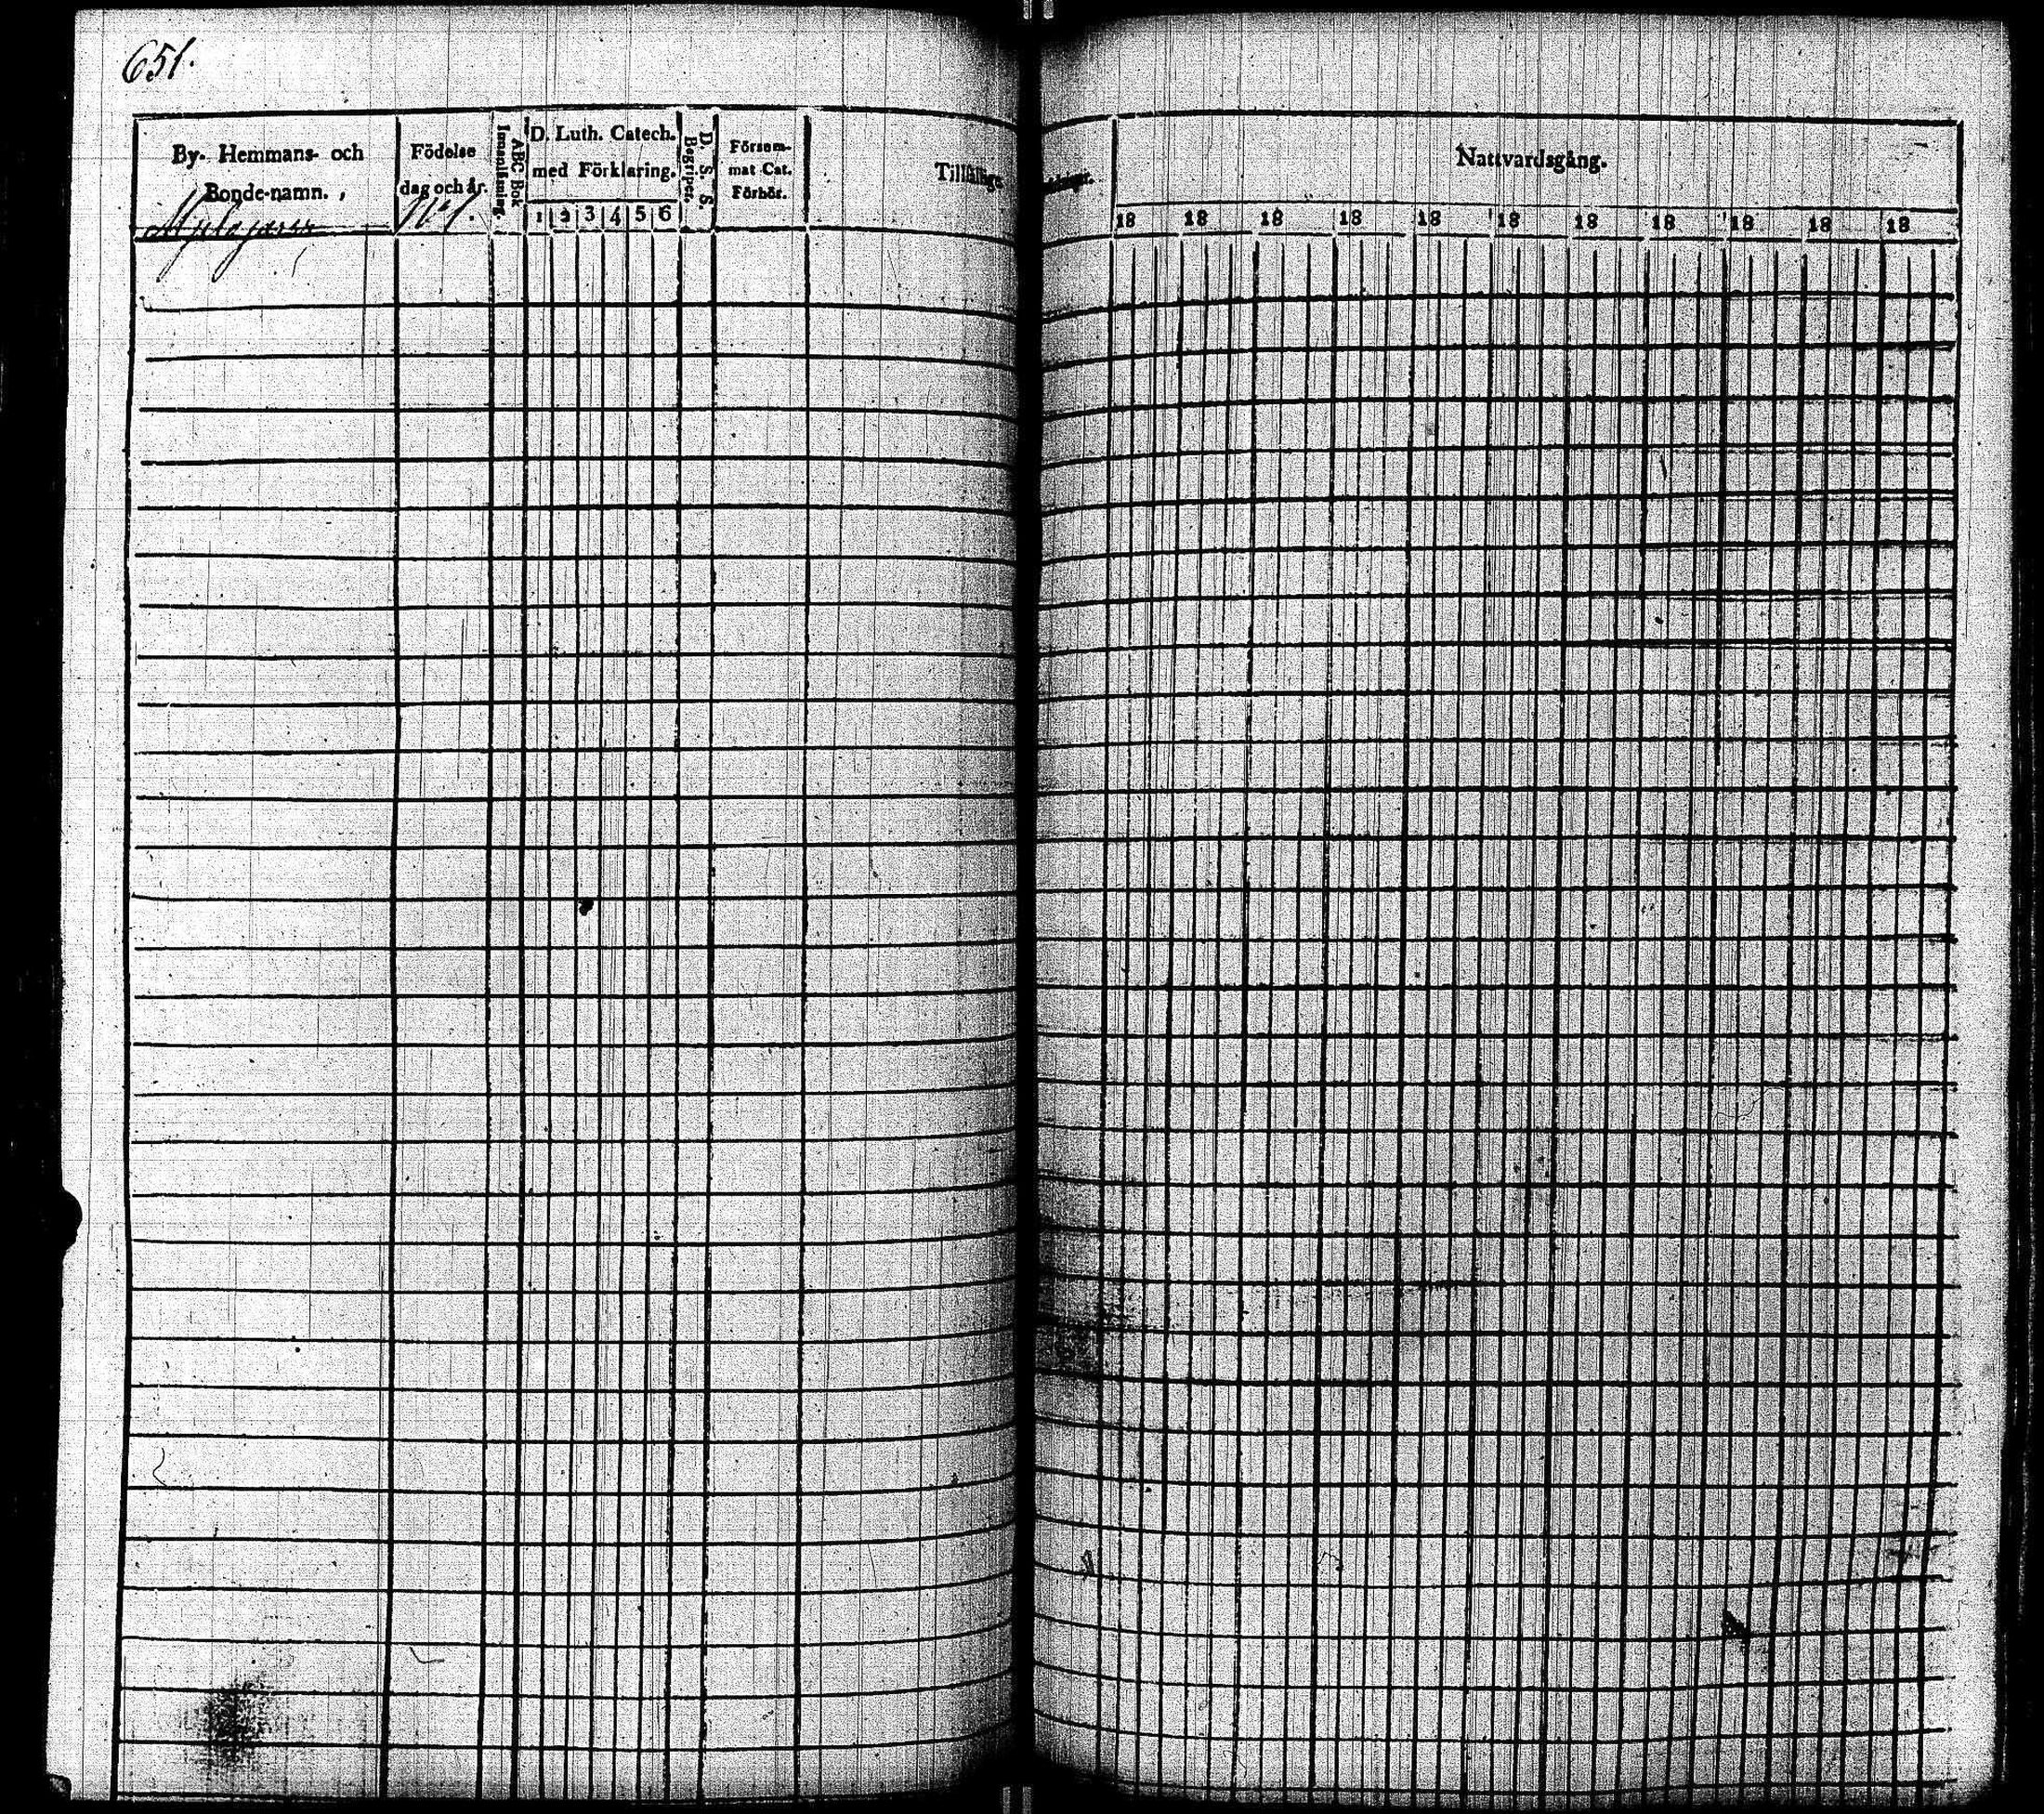 651.
By- Hemmans- och
Bonde-namn.
Födelse
dag och år.
No 1.
ABC-Bok
Innanläsning.
D. Luth. Catech.
med Förklaring.
1 2 3 4 5 6
D. S. S.
Begriper.
Försum-
mat Cat.
Förhör.
Nattvardsgång.
18 18 18 18 18 18 18 18 18 18 18